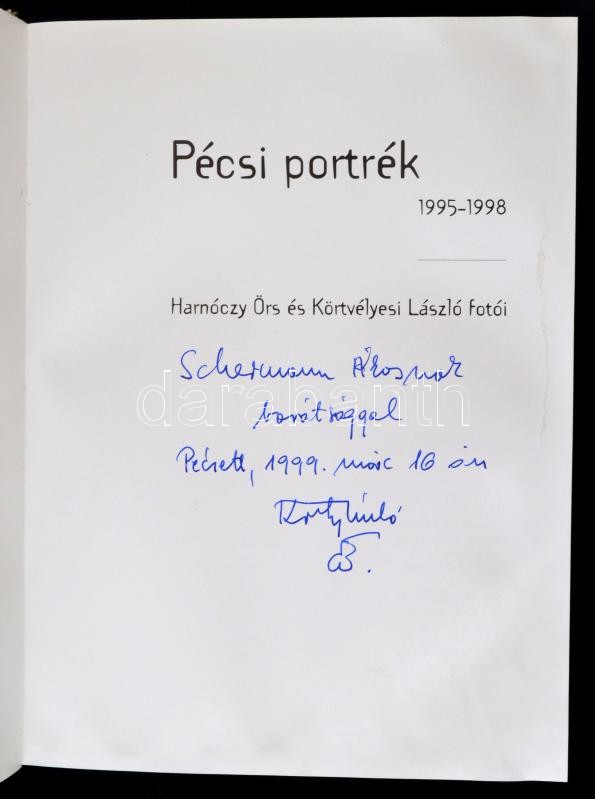 Pécsi portrék
1995-1998
Harnóczy Örs és Körtvélyesi László fotói
Schermann Ákosnak
barátsággal
Pécsett, 1999. márc 16 án
darabanth